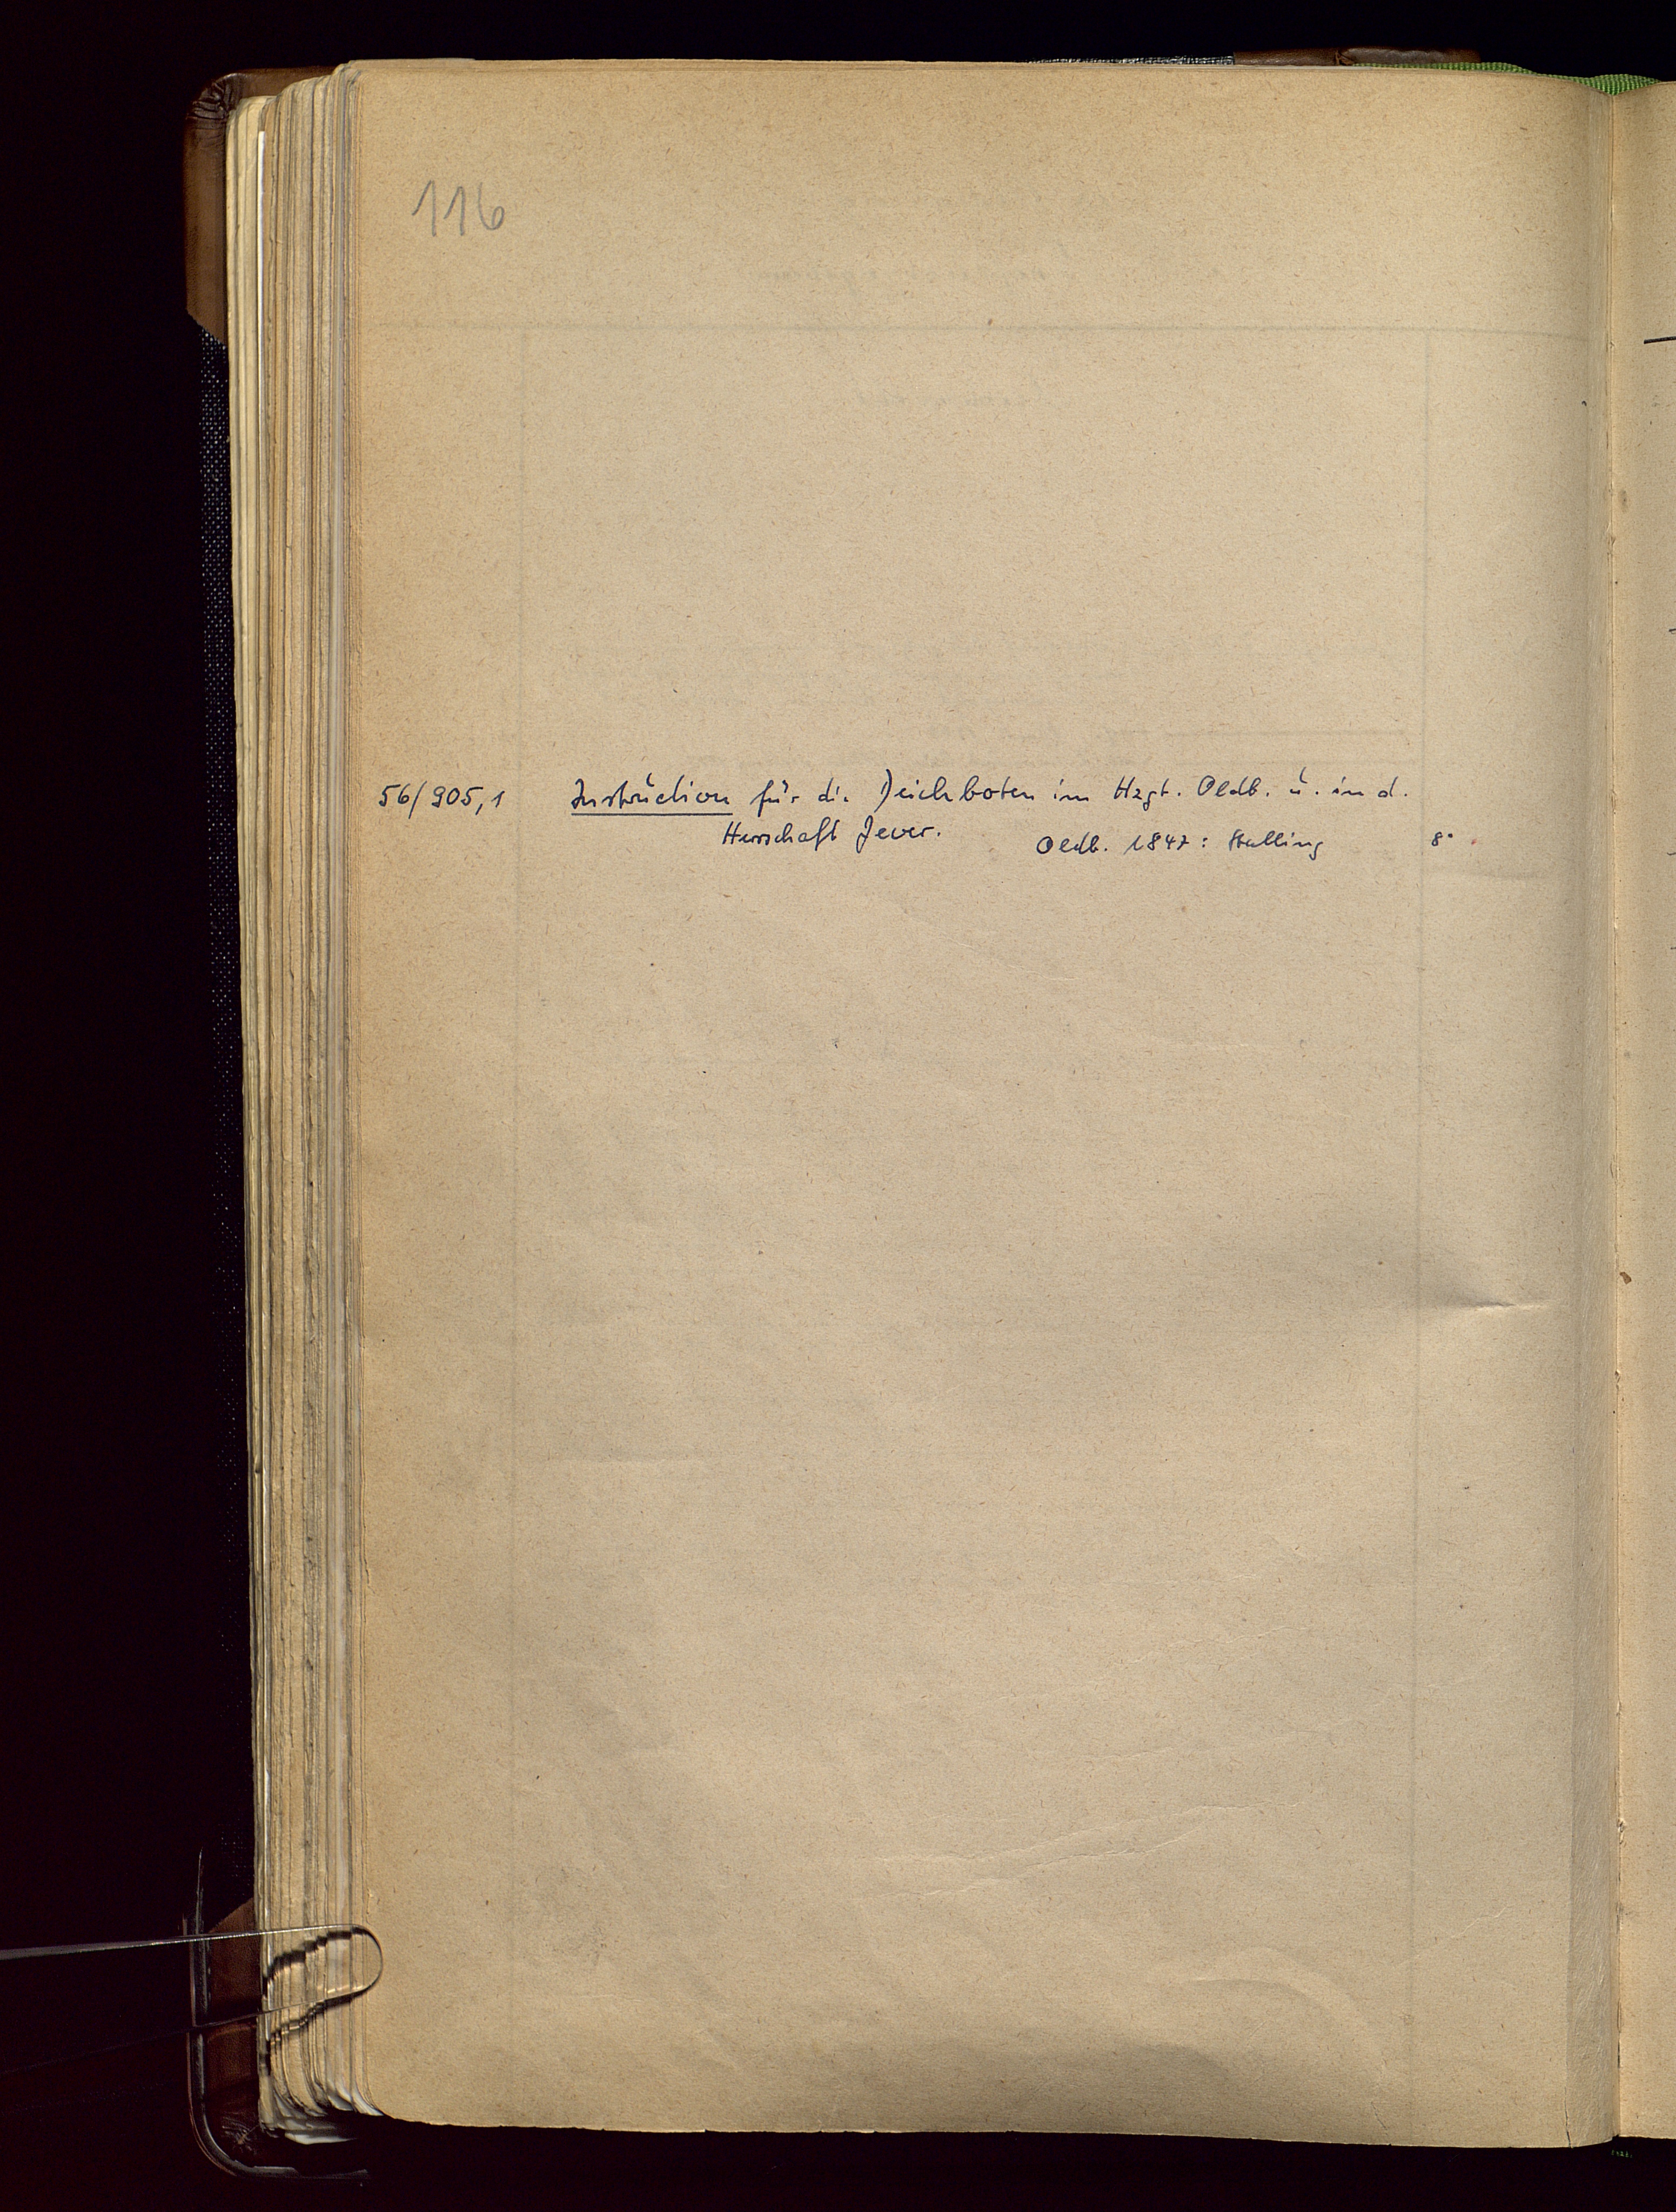 116
56/905,1 Instruction für die Deichboten im Hzgt. Oldb. u. in d.
Herrschaft Jever. Oldb. 1847: Stalling 8°